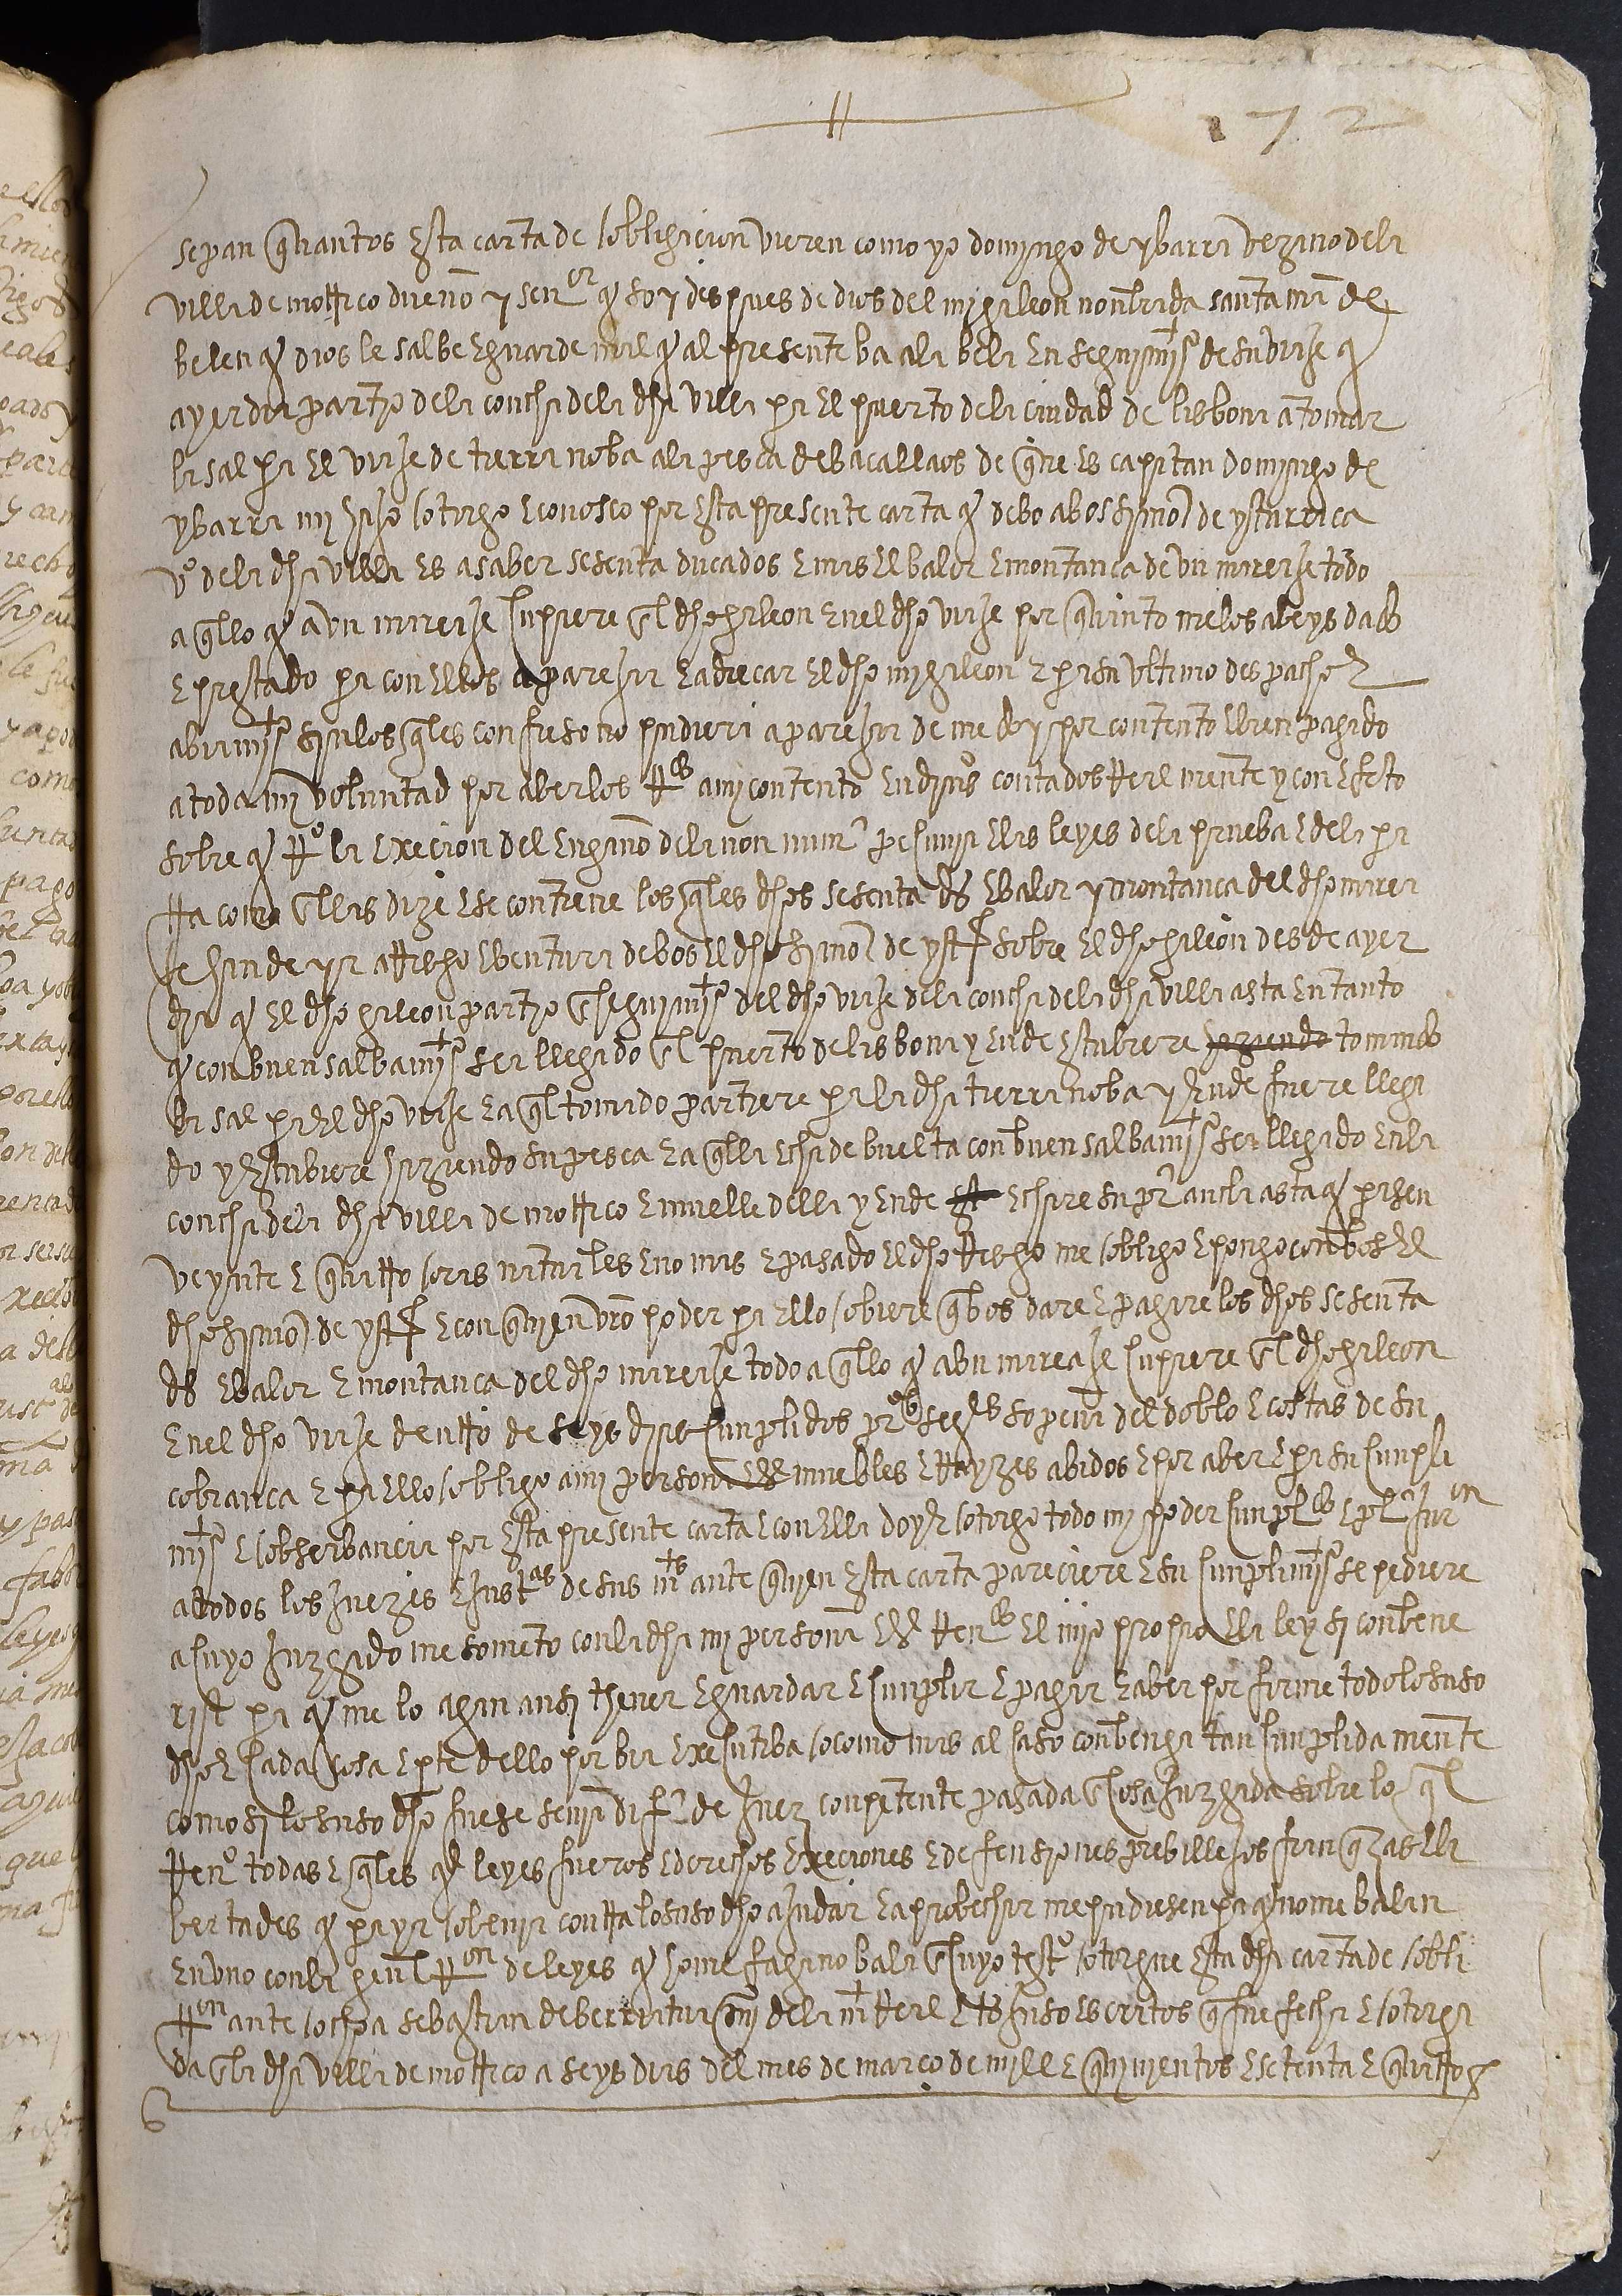 172
sepan quantos esta carta de obligaçion vieren como yo domingo de ybarra vezino de la
villa de motrico dueno y senor q soy despues de dios del mi galeon nonbrada santa mª de
belen q dios le salbe e guarde mill q al presente ba a la bela en seguimiº de su viaje q
ayer dia partio de la concha de la dha villa pª el puerto de la ciudad de lisbona a tomar
la sal pª el viaje de tierra noba a la pesca de bacallaos de que es capitan domingo de
ybarra mi hijo otorgo e conosco por esta presente carta q debo a bos ximon de ysturriça
vº de la dha villa es a saber sesenta ducados e mas el balor e montança de un mareaje todo
aqllo q a un mareaje supiere el dho galeon en el dho viaje por quanto me los abeys dado
e prestado pª con ellos aparejar e adreçar el dho mi galeon e pª su ultimo despacho e
abiamiº sin los qles confieso no pudiera aparejar de me doy por contento e bien pagado
a toda mi voluntad por aberlos Rdos a mi contento en dineros contados Realmente y con efeto
sobre q Rº la exeçion del engano de la non numª pecunia e las leyes de la prueba e de la pa
ga como en ellas dize e se contiene los qles dhos sesenta ds e balor y montança del dho marea
je han de yr a Risgo e bentura de bos el dho ximon de ystª sobre el dho galeon desde ayer
dia q el dho galeon partio en seguimiº del dho viaje de la concha de la dha villa asta en tanto
q con buen salbamiº sea llegado en el puerto de lisbona y ende estubiere haziendo tomando
la sal pª el dho viaje e aql tomado partiere pª la dha tierra noba y ende fuere llega
do y estubiere haziendo su pesca e aqlla echa de buelta con buen salbamiº sea llegado en la
concha de la dha villa de motrico e muelle della y ende est echare su prª ancla asta q pasen
veynte e quatro oras naturales e no mas e pasado el dho Risgo me obligo e pongo con bos el
dho ximon de ystª e con quien vro poder pª ello obiere q bos dare e pagare los dhos sesenta
ds e balor e montança del dho mareaje todo aqllo q a un mareaje supiere el dho galeon
en el dho viaje dentro de seys dias cunplidos prºs segtes so pena del doblo e costas de su
cobrança e pª ello obligo a mi persona e bs muebles e Rayzes abidos e por aber e pª su cunpli
miº e obserbançia por esta presente carta e con ella doy e otorgo todo mi poder cunplido e plª jurºn
a todos los juezes e justas de sus mts ante quien esta carta pareciere e su cunplimiº se pediere
a cuyo juzgado me someto con la dha mi persona e bs Renº el mio propio e la ley si conbene
rist pª q me lo agan ansi thener e guardar e cunplir e pagar e aber por firme todo lo suso
dho e cada cosa e pte dello por bia executiba o como mas al caso conbenga tan cunplidamente
como si lo suso dho fuese sentª difª de juez conpetente pasada en cosa juzgada sobre lo ql
Renº todas e qles q leyes fueros e derechos exeçiones e defensiones prebillejos franquezas e li
bertades q pª yr o benir contra lo suso dho ajudar e aprobechar me pudiesen pª q no me balan
en uno con la genl Ron de leyes q home faga no bala en cuyo testº otorgue esta dha carta de obli
gon ante ochoa sebastian de berriatua scriº de la mt Real e ts juso escritos q fue fecha e otorga
da en la dha villa de motrico a seys dias del mes de março de mill e quinientos e setenta e quatro